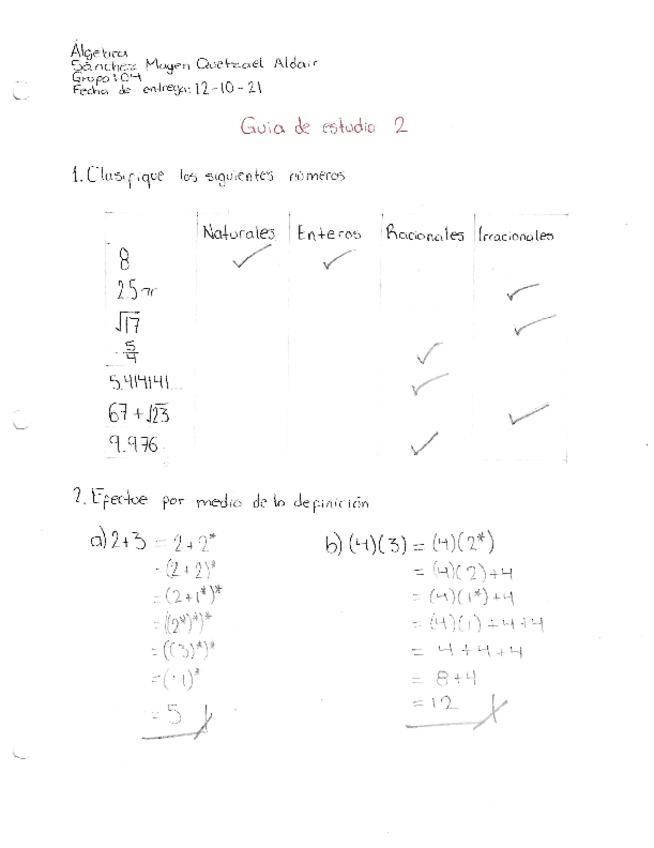 Álgebra
Sánchez Mayen Quetzael Aldair
Grupo: 04
Fecha de entrega: 12-10-21
Guia de estudio 2
1. Clasifique los siguientes números
Naturales Enteros Racionales Irracionales
8 ✓ ✓
25π ✓
√17 ✓
-5/4 ✓
5.414141... ✓
67+√23 ✓
9.976 ✓
2. Efectue por medio de la definición
a) 2+3 = 2+2*
= (2+2)*
= (2+1*)*
= ((2*)*)*
= ((3)*)*
= 5
b) (4)(3) = (4)(2*)
= (4)(2)+4
= (4)(1*)+4
= (4)(1)+4+4
= 4+4+4
= 8+4
= 12